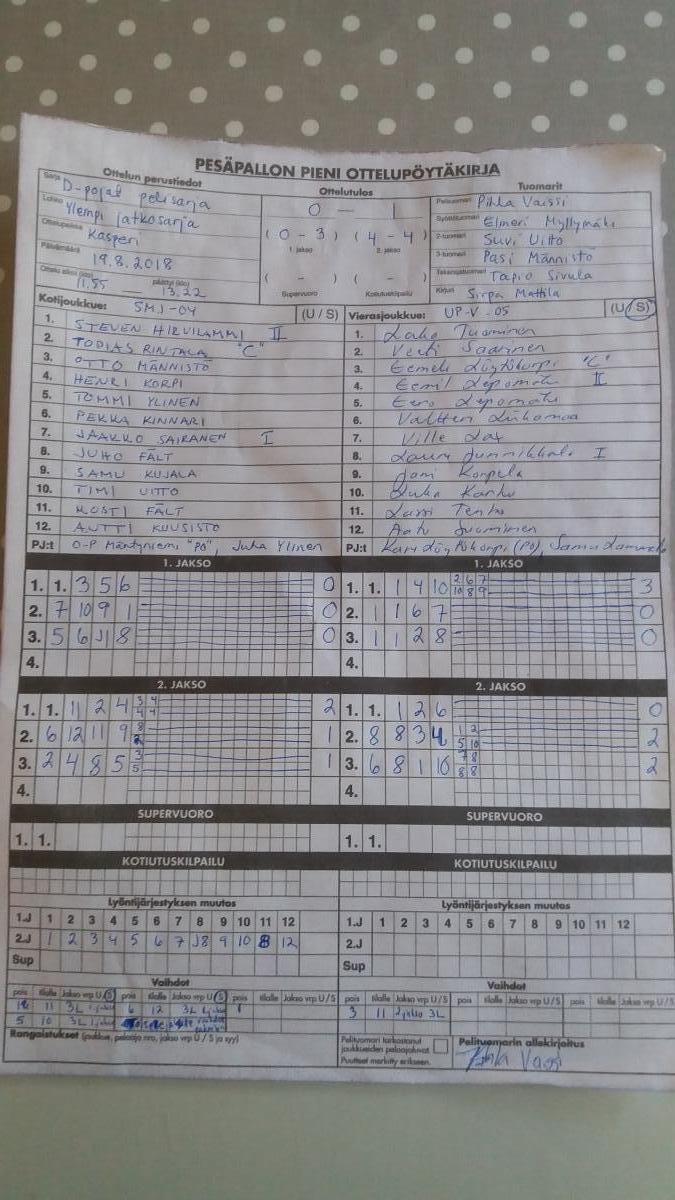 PESÄPALLON PIENI OTTELUPÖYTÄKIRJA
Ottelun perustiedot
Sarja D-pojat pelisarja
Lohko Ylempi jatkosarja
Ottelupaikka Kasperi
Päivämäärä 19.8.2018
Ottelu alkoi (klo) 11.55 — päättyi (klo) 13.22
Ottelutulos
0 — 1
(0 - 3) (4 - 4)
1. jakso 2. jakso
( - ) ( - )
Supervuoro Kotiutuskilpailu
Tuomarit
Pelituomari Pihla Vaissi
Syöttötuomari Elmeri Myllymäki
2-tuomari Suvi Uitto
3-tuomari Pasi Männistö
Takarajatuomari Tapio Sivula
Kirjuri Sirpa Mattila
Kotijoukkue: SMJ-04 (U / S)
1. STEVEN HIRVILAMMI II
2. TOBIAS RINTALA "C"
3. OTTO MÄNNISTÖ
4. HENRI KORPI
5. TOMMI YLINEN
6. PEKKA KINNARI
7. JAAKKO SAIRANEN I
8. JUHO FÄLT
9. SAMU KUJALA
10. TIMI UITTO
11. KOSTI FÄLT
12. ANTTI KUUSISTO
PJ:t O-P Mäntyniemi "PO", Juha Ylinen
Vierasjoukkue: UP-V-05 (U / S)
1. Tuominen
2. Veeti Saarinen
3. Eemeli Löytökorpi "C"
4. Eemil Lepomäki II
5. Eero Lepomäki
6. Valtteri
7. Ville
8. I
9. Jani Korpela
10.
11. Lassi
12. Aatu Suominen
PJ:t Kari Löytökorpi (PO), Samu
1. JAKSO
1. 1. 3 5 6 0
2. 7 10 9 1 0
3. 5 6 J1 8 0
4.
1. JAKSO
1. 1. 1 4 10 2 6 7 10 8 9 3
2. 1 1 6 7 0
3. 1 1 2 8 0
4.
2. JAKSO
1. 1. 11 2 4 3 4 4 4 2
2. 6 12 11 9 8 2 1
3. 2 4 8 5 3 5 1
4.
2. JAKSO
1. 1. 1 2 6 0
2. 8 8 3 4 1 2 5 10 2
3. 6 8 1 10 7 8 8 8 2
4.
SUPERVUORO
1. 1.
SUPERVUORO
1. 1.
KOTIUTUSKILPAILU
KOTIUTUSKILPAILU
Lyöntijärjestyksen muutos
1.J 1 2 3 4 5 6 7 8 9 10 11 12
2.J 1 2 3 4 5 6 7 J8 9 10 8 12
Sup
Lyöntijärjestyksen muutos
1.J 1 2 3 4 5 6 7 8 9 10 11 12
2.J
Sup
Vaihdot
pois tilalle Jakso vrp U / S pois tilalle Jakso vrp U / S pois tilalle Jakso vrp U / S
11 3L 1 jakso 6 12 3L 1 jakso
5 10 3L 1 jakso
Vaihdot
pois tilalle Jakso vrp U / S pois tilalle Jakso vrp U / S pois tilalle Jakso vrp U / S
3 11 2 jakso 3L
Rangaistukset (joukkue, pelaaja nro, jakso vrp U / S ja syy)
Pelituomari tarkastanut
joukkueiden pelaajaluvat
Puutteet merkitty erikseen.
Pelituomarin allekirjoitus
Pihla Vaissi